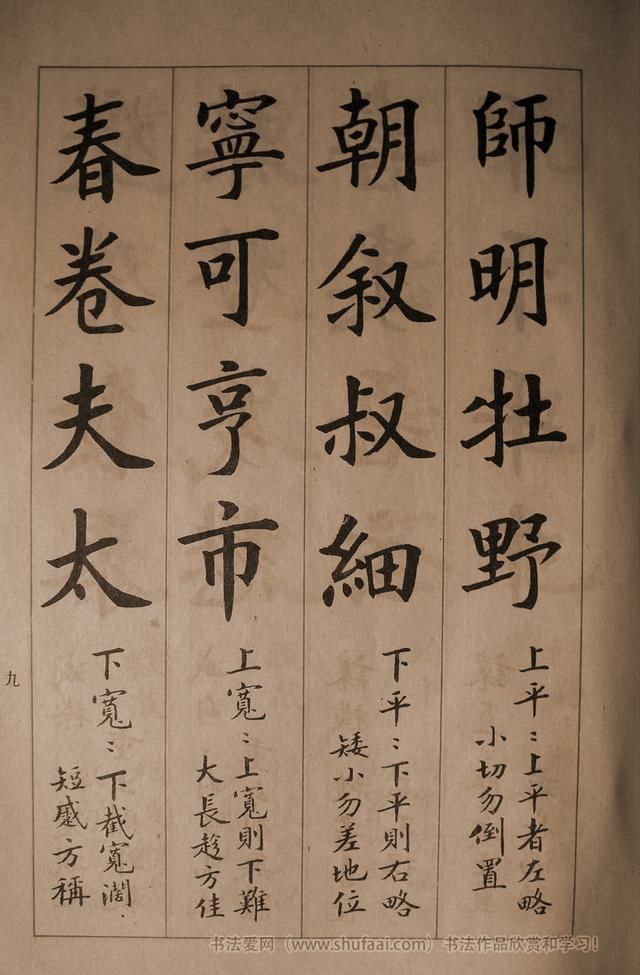 師明牡野
上平：上平者左略
小切勿倒置
朝叙叔細
下平：下平則右略
矮小勿差地位
寧可亨市
上寬：上寬則下難
大長趁方佳
春卷夫太
下寬：下截寬濶、
短蹙方稱
九
书法爱网（www.shufaai.com）书法作品欣赏和学习！